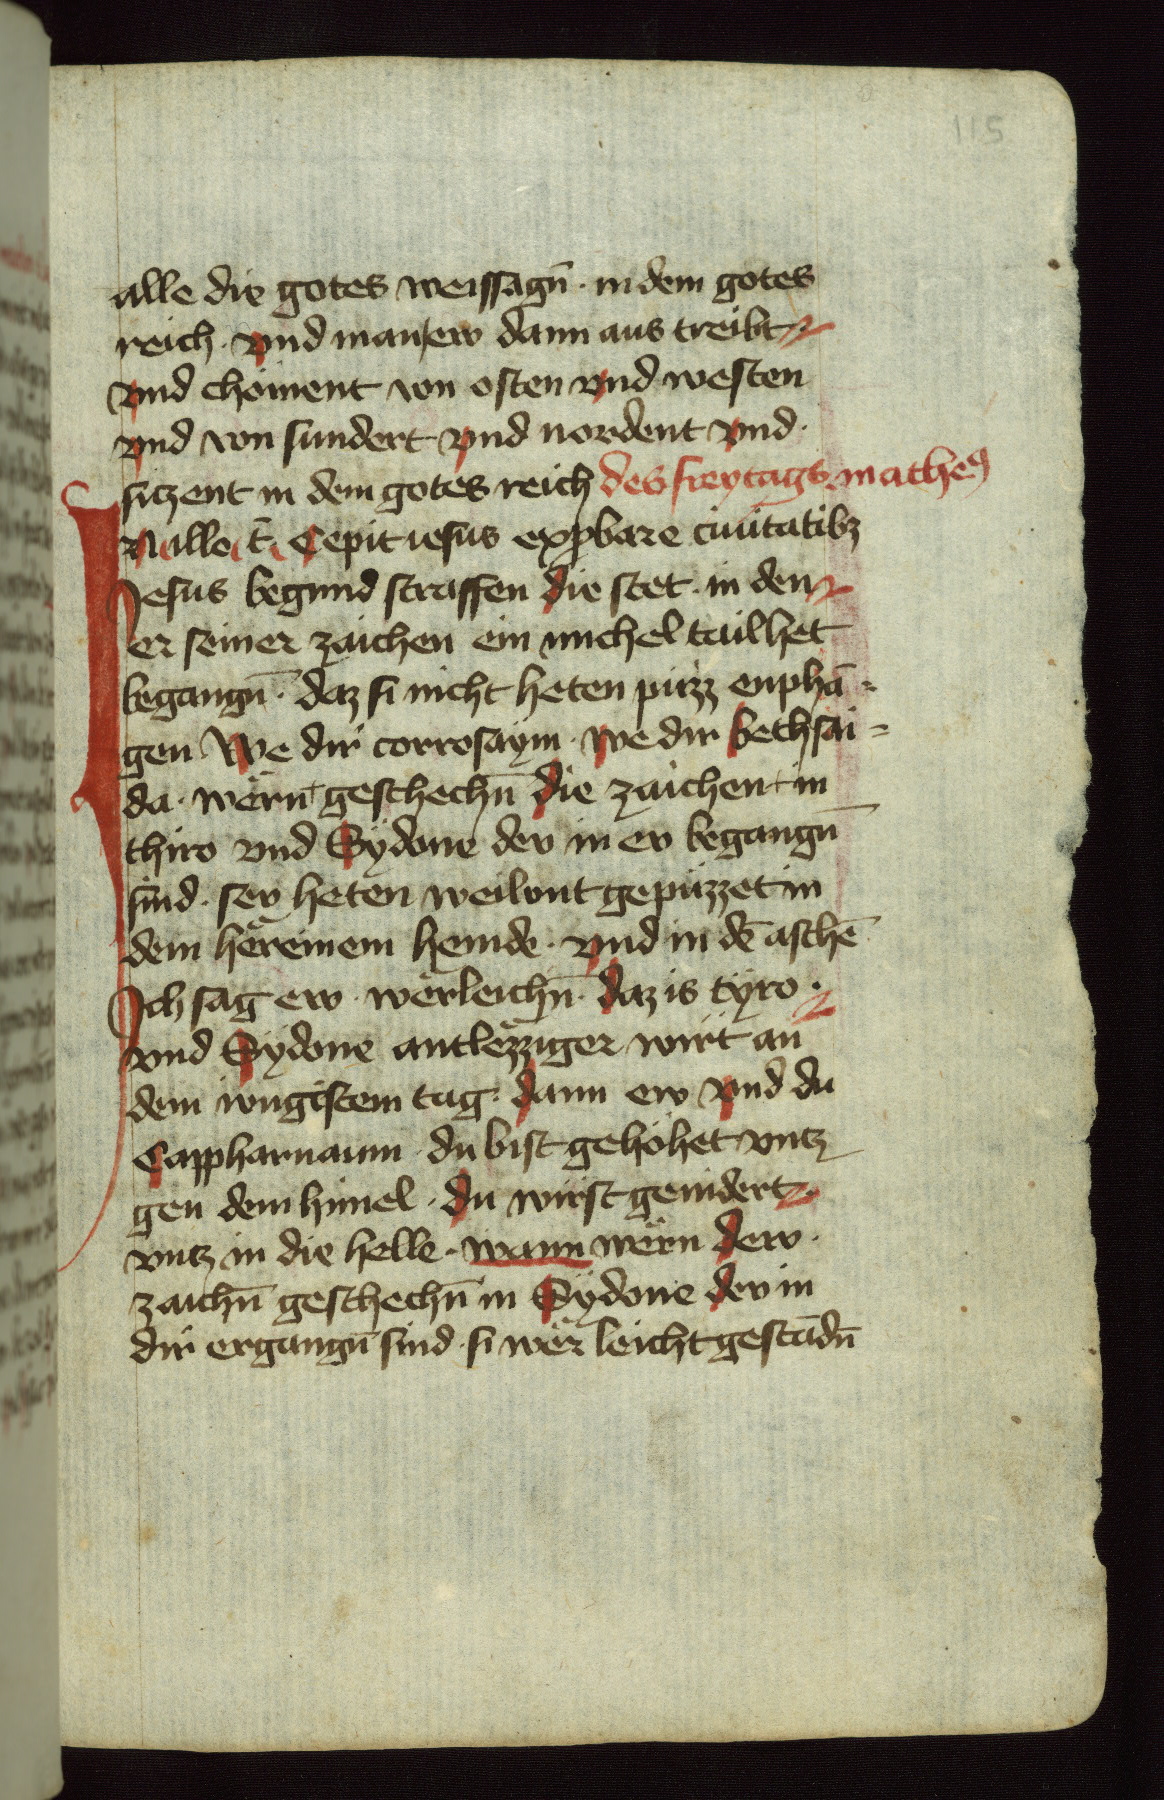 115
alle die gotes weissagn̄ · in dem gotes
reich · vnd man ew dann aus treibt
vnd choment von osten vnd westen
vnd von sundert vnd nordent vnd ·
sitzent in dem gotes reich des freytags matheꝰ
In illo t̄ · Cepit iesus exꝓbare ciuitatibꝫ
Jesus begund straffen die stet · in den
er seiner zaichen ein michel tail het
begangn̄ · daz si nicht heten půzz enphā =
gen We dir corrosaym · we dir bethsai =
da · wërn geschechn̄ die zaichen in
thiro vnd Sydone dev in ev begangn̄
sind · sey heten weilont gepüzzet in
dem häreinem hemde · vnd in dē aschē
Ich sag ew · wërleichn̄ · daz is tyro ·
vnd Sydone antlëzziger wirt an
dem iungistem tag · dann ew vnd du
Cappharnaum · du bist gehöhet vntz
gen dem himel · du wirst genidert
vntz in die helle · wann wërn dew ·
zaichn̄ geschechn̄ in Sydone dev in
dir ergangn̄ sind · si wër leicht gestādn̄